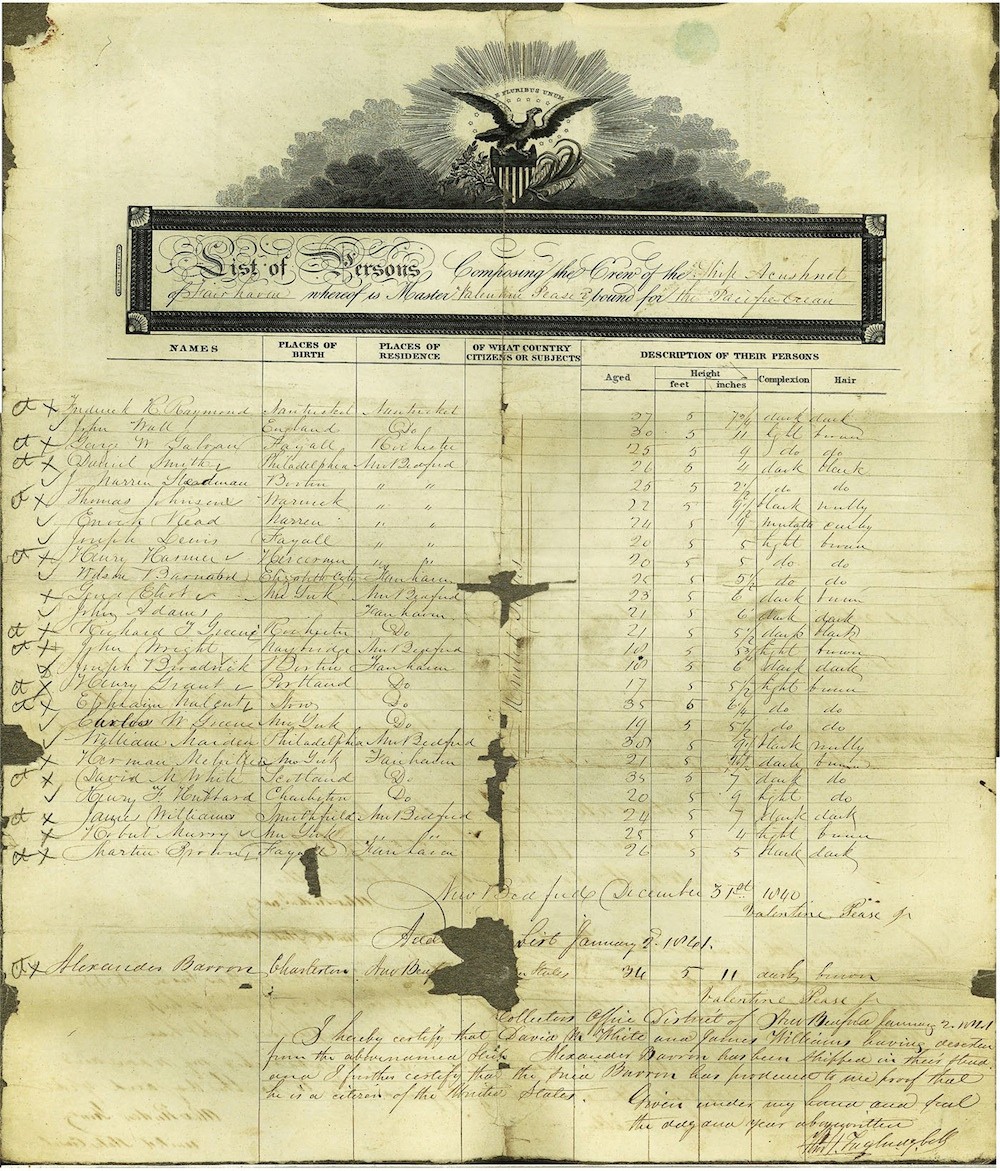 E PLURIBUS UNUM
List of Persons Composing the Crew of the Ship Acushnet
of Fairhaven whereof is Master Valentine Pease Jr bound for the Pacific Ocean
NAMES PLACES OF BIRTH PLACES OF RESIDENCE OF WHAT COUNTRY CITIZENS OR SUBJECTS DESCRIPTION OF THEIR PERSONS
Aged Height feet inches Complexion Hair
Frederick R Raymond Nantucket Nantucket 27 5 dark dark
John Wall England Do 30 5 11 light brown
George W Galvan Fayall Rochester 25 5 9 do do
Daniel Smith Philadelphia New Bedford 26 5 4 dark black
Warren Boston " " 25 5 2½ do do
Thomas Johnson Warwick " " 22 5 black wolly
Enoch Read Warren " " 24 5 9 mulatto curly
Joseph Lewis Fayall " " 20 5 5 light brown
Henry Harmer " " 20 5 5 do do
Wilson Barnard Elizabeth City Fairhaven 25 5 5½ do do
George New York New Bedford 23 5 6 dark brown
John Adams Fairhaven 21 5 6 dark dark
Richard T Greene Rochester Do 21 5 5½ dark black
John Wright New Bedford 18 5 light brown
Joseph Broadrick Boston Fairhaven 18 5 6 black dark
Henry Grant Portland Do 17 5 5½ light brown
Ephraim Do 35 do do
Carlos W Greene New York Do 19 5 5½ do do
William Maiden Philadelphia New Bedford 30 5 black wolly
Herman Melville New York Fairhaven 21 5 9½ dark brown
David M White Scotland Do 35 5 7 dark do
Henry F Hubbard Charleston Do 20 5 9 light do
James Williams Smithfield New Bedford 24 5 7 dark dark
Robert Murry New York " " 25 5 4 light brown
Martin Brown Fayall Fairhaven 26 5 5 dark dark
United States
New Bedford December 31st 1840
Valentine Pease Jr
List January 2. 1841.
Alexander Barron Charleston States 34 5 11 dark brown
Valentine Pease Jr
Collectors Office District of New Bedford January 2. 1841
I hereby certify that David M White and James Williams having deserted
from the abovenamed Ship Alexander Barron has been shipped in their stead
and I further certify that the said Barron has produced to me proof that
he is a citizen of the United States.
Given under my hand and seal
the day and year abovewritten